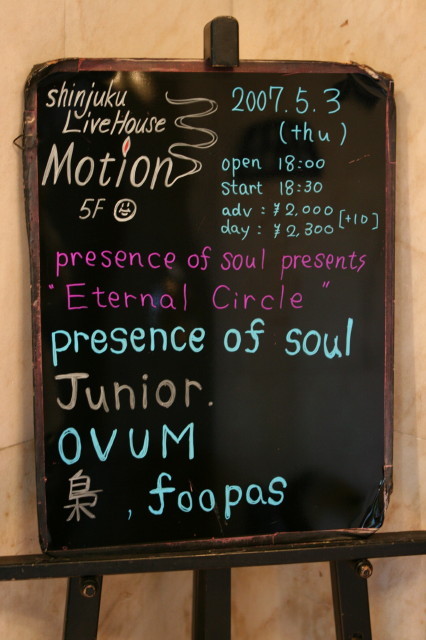 shinjuku
LiveHouse
Motion
5F
2007.5.3
(thu)
open 18:00
start 18:30
adv : ¥2,000
day : ¥2,300 [+1D]
presence of soul presents
"Eternal Circle"
presence of soul
Junior.
OVUM
梟, foopas